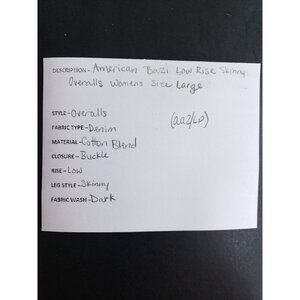 DESCRIPTION - American Bazi Low Rise Skinny
Overalls Womens Size Large
STYLE - Overalls
FABRIC TYPE - Denim
MATERIAL - Cotton Blend
CLOSURE - Buckle
RISE - Low
LEG STYLE - Skinny
FABRIC WASH - Dark